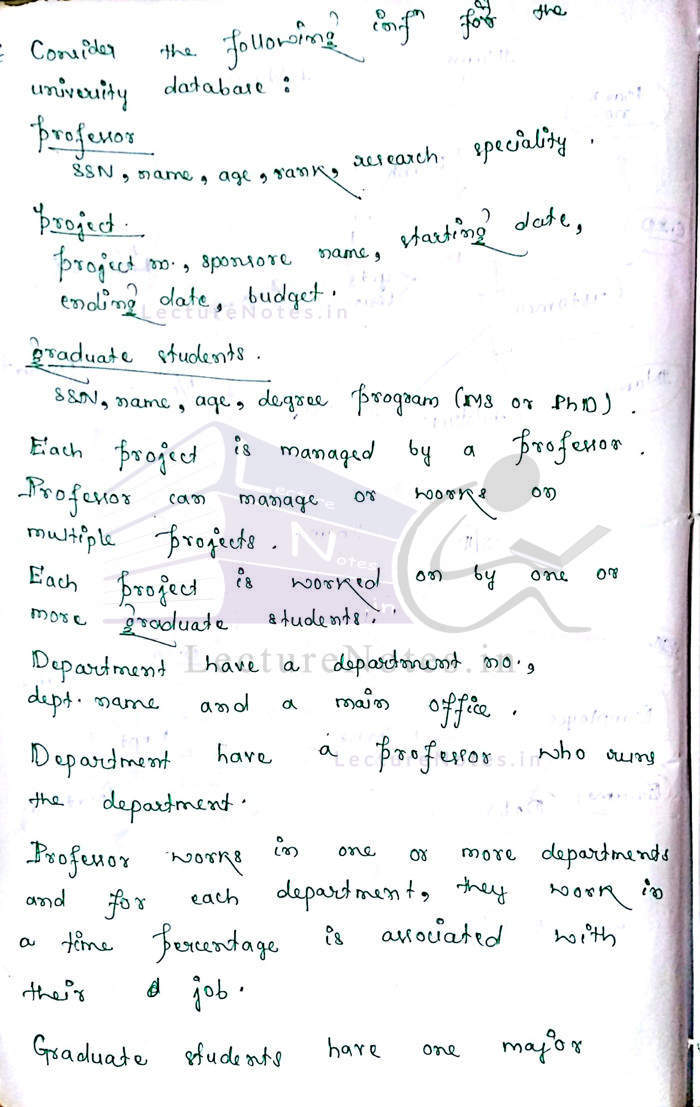 Consider the following infⁿ for the
university database :
professor
SSN, name, age, rank, research speciality.
project.
project no., sponsore name, starting date,
ending date, budget.
LectureNotes.in
graduate students.
SSN, name, age, degree program (MS or PhD).
Each project is managed by a professor.
Professor can manage or works on
multiple projects.
Each project is worked on by one or
more graduate students.
LectureNotes.in
Department have a department no.,
dept. name and a main office.
Department have a professor who runs
LectureNotes.in
the department.
Professor works in one or more departments
and for each department, they work in
a time percentage is associated with
their job.
Graduate students have one major